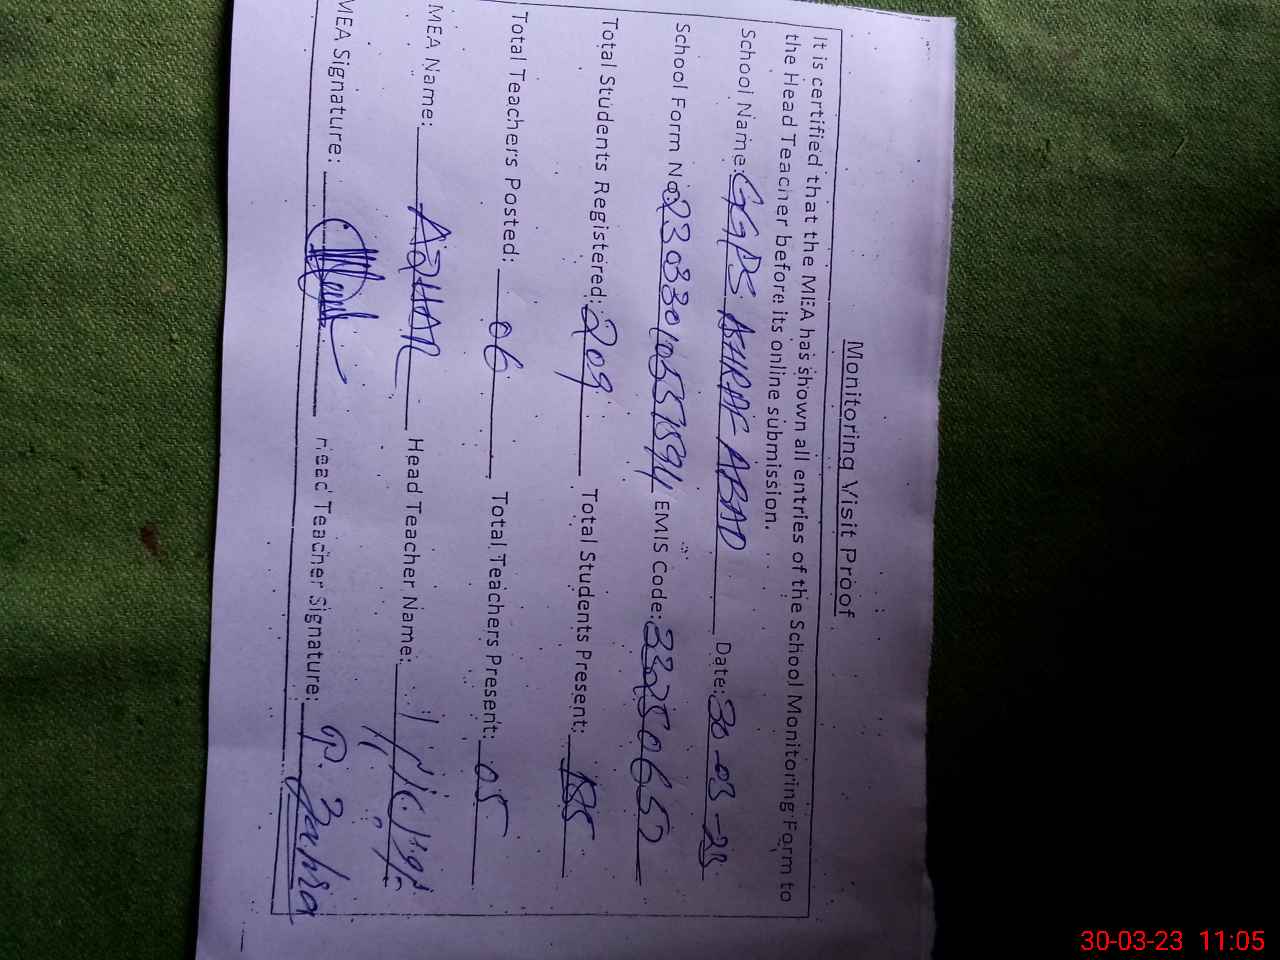 Monitoring Visit Proof
It is certified that the MEA has shown all entries of the School Monitoring Form to
the Head Teacher before its online submission.
School Name: GGPS ASHRAF ABAD Date: 30-03-23
School Form No: EMIS Code: 33250657
Total Students Registered: 209 Total Students Present: 185
Total Teachers Posted: 06 Total Teachers Present: 05
MEA Name: AZHAR Head Teacher Name:
MEA Signature: Head Teacher Signature: P. Zahra
30-03-23 11:05